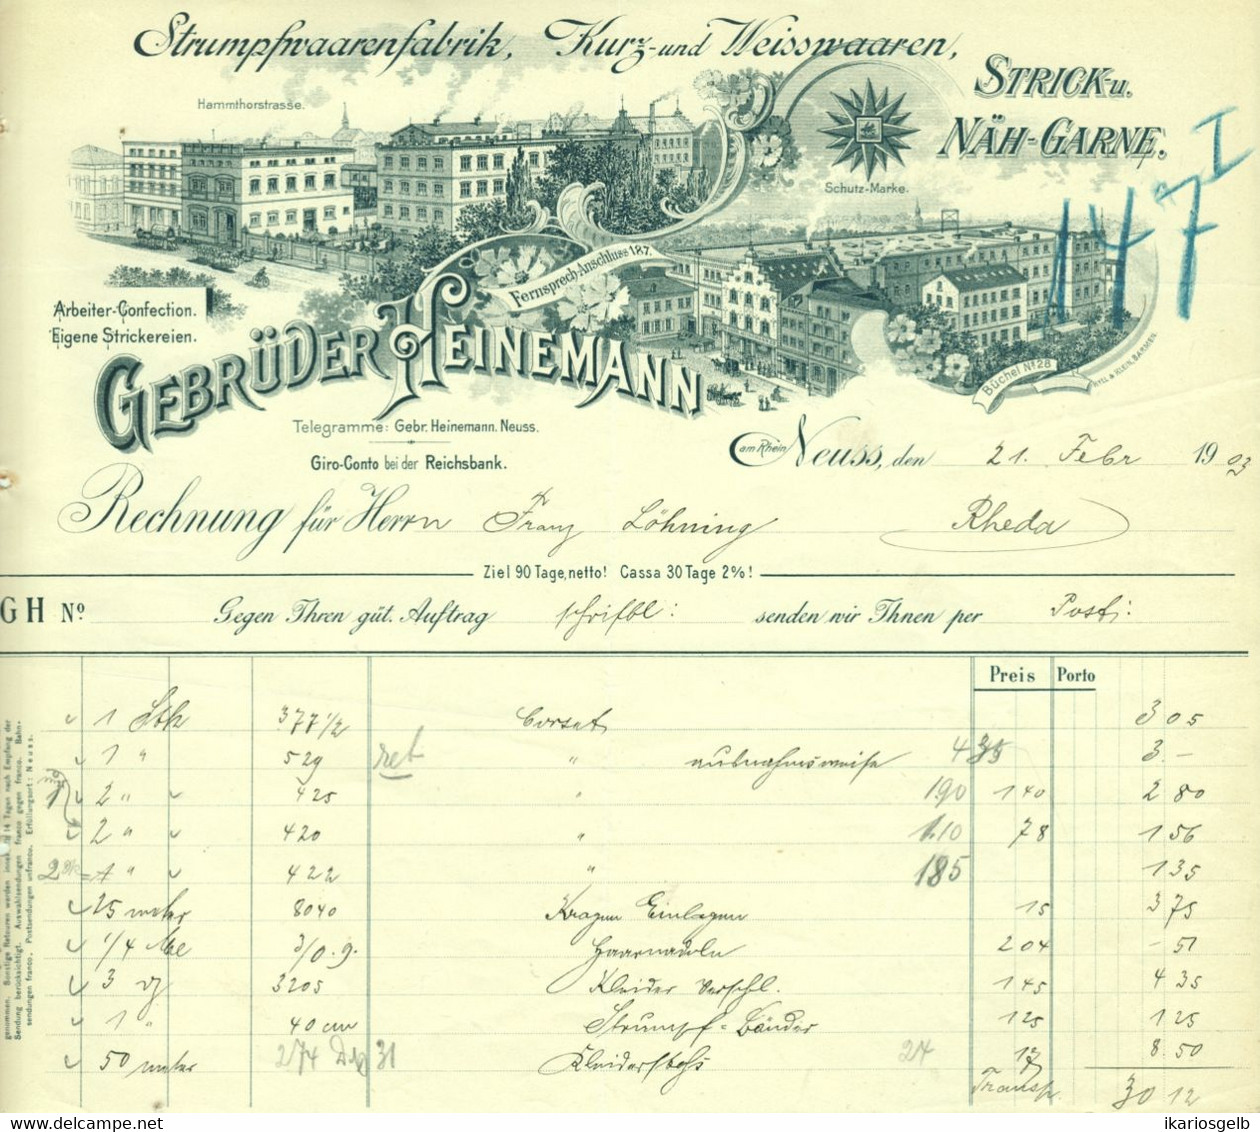 Strumpfwaarenfabrik, Kurz- und Weisswaaren,
STRICK- u.
NÄH-GARNE.
Hammthorstrasse.
Schutz-Marke.
147 I
Fernsprech-Anschluss 187.
Arbeiter-Confection.
Eigene Strickereien.
GEBRÜDER HEINEMANN
Büchel No 28
Telegramme: Gebr. Heinemann. Neuss.
Giro-Conto bei der Reichsbank.
am Rhein Neuss, den 21. Febr 1903
Rechnung für Herrn Franz Löhning Rheda
Ziel 90 Tage, netto! Cassa 30 Tage 2%!
GH No. Gegen Ihren güt. Auftrag schriftl: senden wir Ihnen per Post:
Preis Porto
1 Stk 377 1/2 Corset 3 05
1 " 529 ret " ausnahmsweise 435 3.-
2 " 425 " 190 1 40 2 80
2 " 420 " 1.10 78 1 56
1 " 422 " 185 1 35
25 meter 8040 Kragen Einlagen 15 3 75
1/4 Me 3/0.9. Haarnadeln 204 - 51
3 3205 Kleider Verschl. 1 45 4 35
1 " 40 cm Strumpf-Bänder 1 25 1 25
50 meter 274 31 24 17 8.50
Transp. 30 12
genommen. Sonstige Retouren werden innerh. 14 Tagen nach Empfang der
Sendung berücksichtigt. Auswahlsendungen franco gegen franco. Bahn-
sendungen franco, Postsendungen unfranco. Erfüllungsort: Neuss.
ikariosgelb